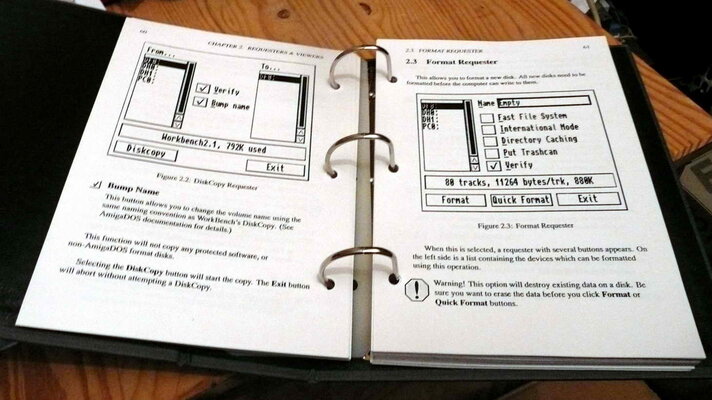 60
CHAPTER 2. REQUESTERS & VIEWERS
From...
To...
DF0:
DH0:
DH1:
PC0:
DF0:
Verify
Bump name
Workbench2.1, 792K used
Diskcopy
Exit
Figure 2.2: DiskCopy Requester
Bump Name
This button allows you to change the volume name using the
same naming convention as WorkBench's DiskCopy. (See
AmigaDOS documentation for details.)
This function will not copy any protected software, or
non-AmigaDOS format disks.
Selecting the DiskCopy button will start the copy. The Exit button
will abort without attempting a DiskCopy.
2.3. FORMAT REQUESTER
61
2.3 Format Requester
This allows you to format a new disk. All new disks need to be
formatted before the computer can write to them.
DF0:
DH0:
DH1:
PC0:
Name Empty
Fast File System
International Mode
Directory Caching
Put Trashcan
Verify
80 tracks, 11264 bytes/trk, 880K
Format
Quick Format
Exit
Figure 2.3: Format Requester
When this is selected, a requester with several buttons appears. On
the left side is a list containing the devices which can be formatted
using this operation.
Warning! This option will destroy existing data on a disk. Be
sure you want to erase the data before you click Format or
Quick Format buttons.